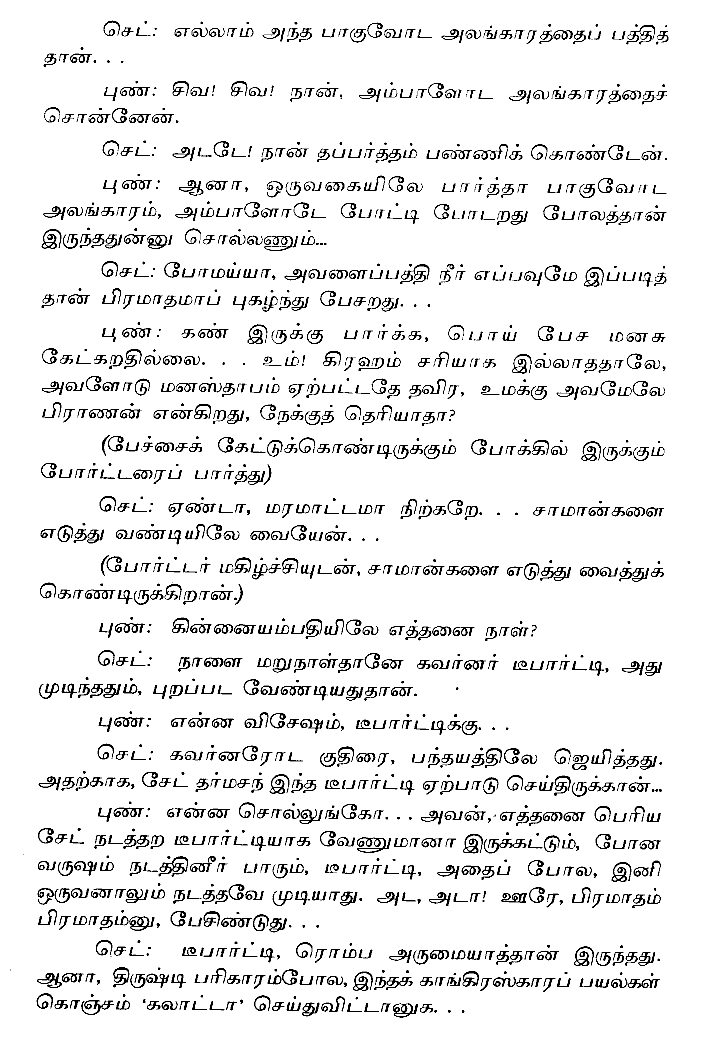 செட்: எல்லாம் அந்த பாகுவோட அலங்காரத்தைப் பத்தித்
தான். . .
புண்: சிவ! சிவ! நான், அம்பாளோட அலங்காரத்தைச்
சொன்னேன்.
செட்: அடடே! நான் தப்பர்த்தம் பண்ணிக் கொண்டேன்.
புண்: ஆனா, ஒருவகையிலே பார்த்தா பாகுவோட
அலங்காரம், அம்பாளோடே போட்டி போடறது போலத்தான்
இருந்ததுன்னு சொல்லணும்...
செட்: போமய்யா, அவளைப்பத்தி நீர் எப்பவுமே இப்படித்
தான் பிரமாதமாப் புகழ்ந்து பேசறது. . .
புண்: கண் இருக்கு பார்க்க, பொய் பேச மனசு
கேட்கறதில்லை. . . உம்! கிரஹம் சரியாக இல்லாததாலே,
அவளோடு மனஸ்தாபம் ஏற்பட்டதே தவிர, உமக்கு அவமேலே
பிராணன் என்கிறது, நேக்குத் தெரியாதா?
(பேச்சைக் கேட்டுக்கொண்டிருக்கும் போக்கில் இருக்கும்
போர்ட்டரைப் பார்த்து)
செட்: ஏண்டா, மரமாட்டமா நிற்கறே. . . சாமான்களை
எடுத்து வண்டியிலே வையேன். . .
(போர்ட்டர் மகிழ்ச்சியுடன், சாமான்களை எடுத்து வைத்துக்
கொண்டிருக்கிறான்.)
புண்: கின்னையம்பதியிலே எத்தனை நாள்?
செட்: நாளை மறுநாள்தானே கவர்னர் டீபார்ட்டி, அது
முடிந்ததும், புறப்பட வேண்டியதுதான்.
புண்: என்ன விசேஷம், டீபார்ட்டிக்கு. . .
செட்: கவர்னரோட குதிரை, பந்தயத்திலே ஜெயித்தது.
அதற்காக, சேட் தர்மசந் இந்த டீபார்ட்டி ஏற்பாடு செய்திருக்கான்...
புண்: என்ன சொல்லுங்கோ. . . அவன், எத்தனை பெரிய
சேட் நடத்தற டீபார்ட்டியாக வேணுமானா இருக்கட்டும், போன
வருஷம் நடத்தினீர் பாரும், டீபார்ட்டி, அதைப் போல, இனி
ஒருவனாலும் நடத்தவே முடியாது. அட, அடா! ஊரே, பிரமாதம்
பிரமாதம்னு, பேசிண்டுது. . .
செட்: டீபார்ட்டி, ரொம்ப அருமையாத்தான் இருந்தது.
ஆனா, திருஷ்டி பரிகாரம்போல, இந்தக் காங்கிரஸ்காரப் பயல்கள்
கொஞ்சம் ‘கலாட்டா’ செய்துவிட்டானுக. . .